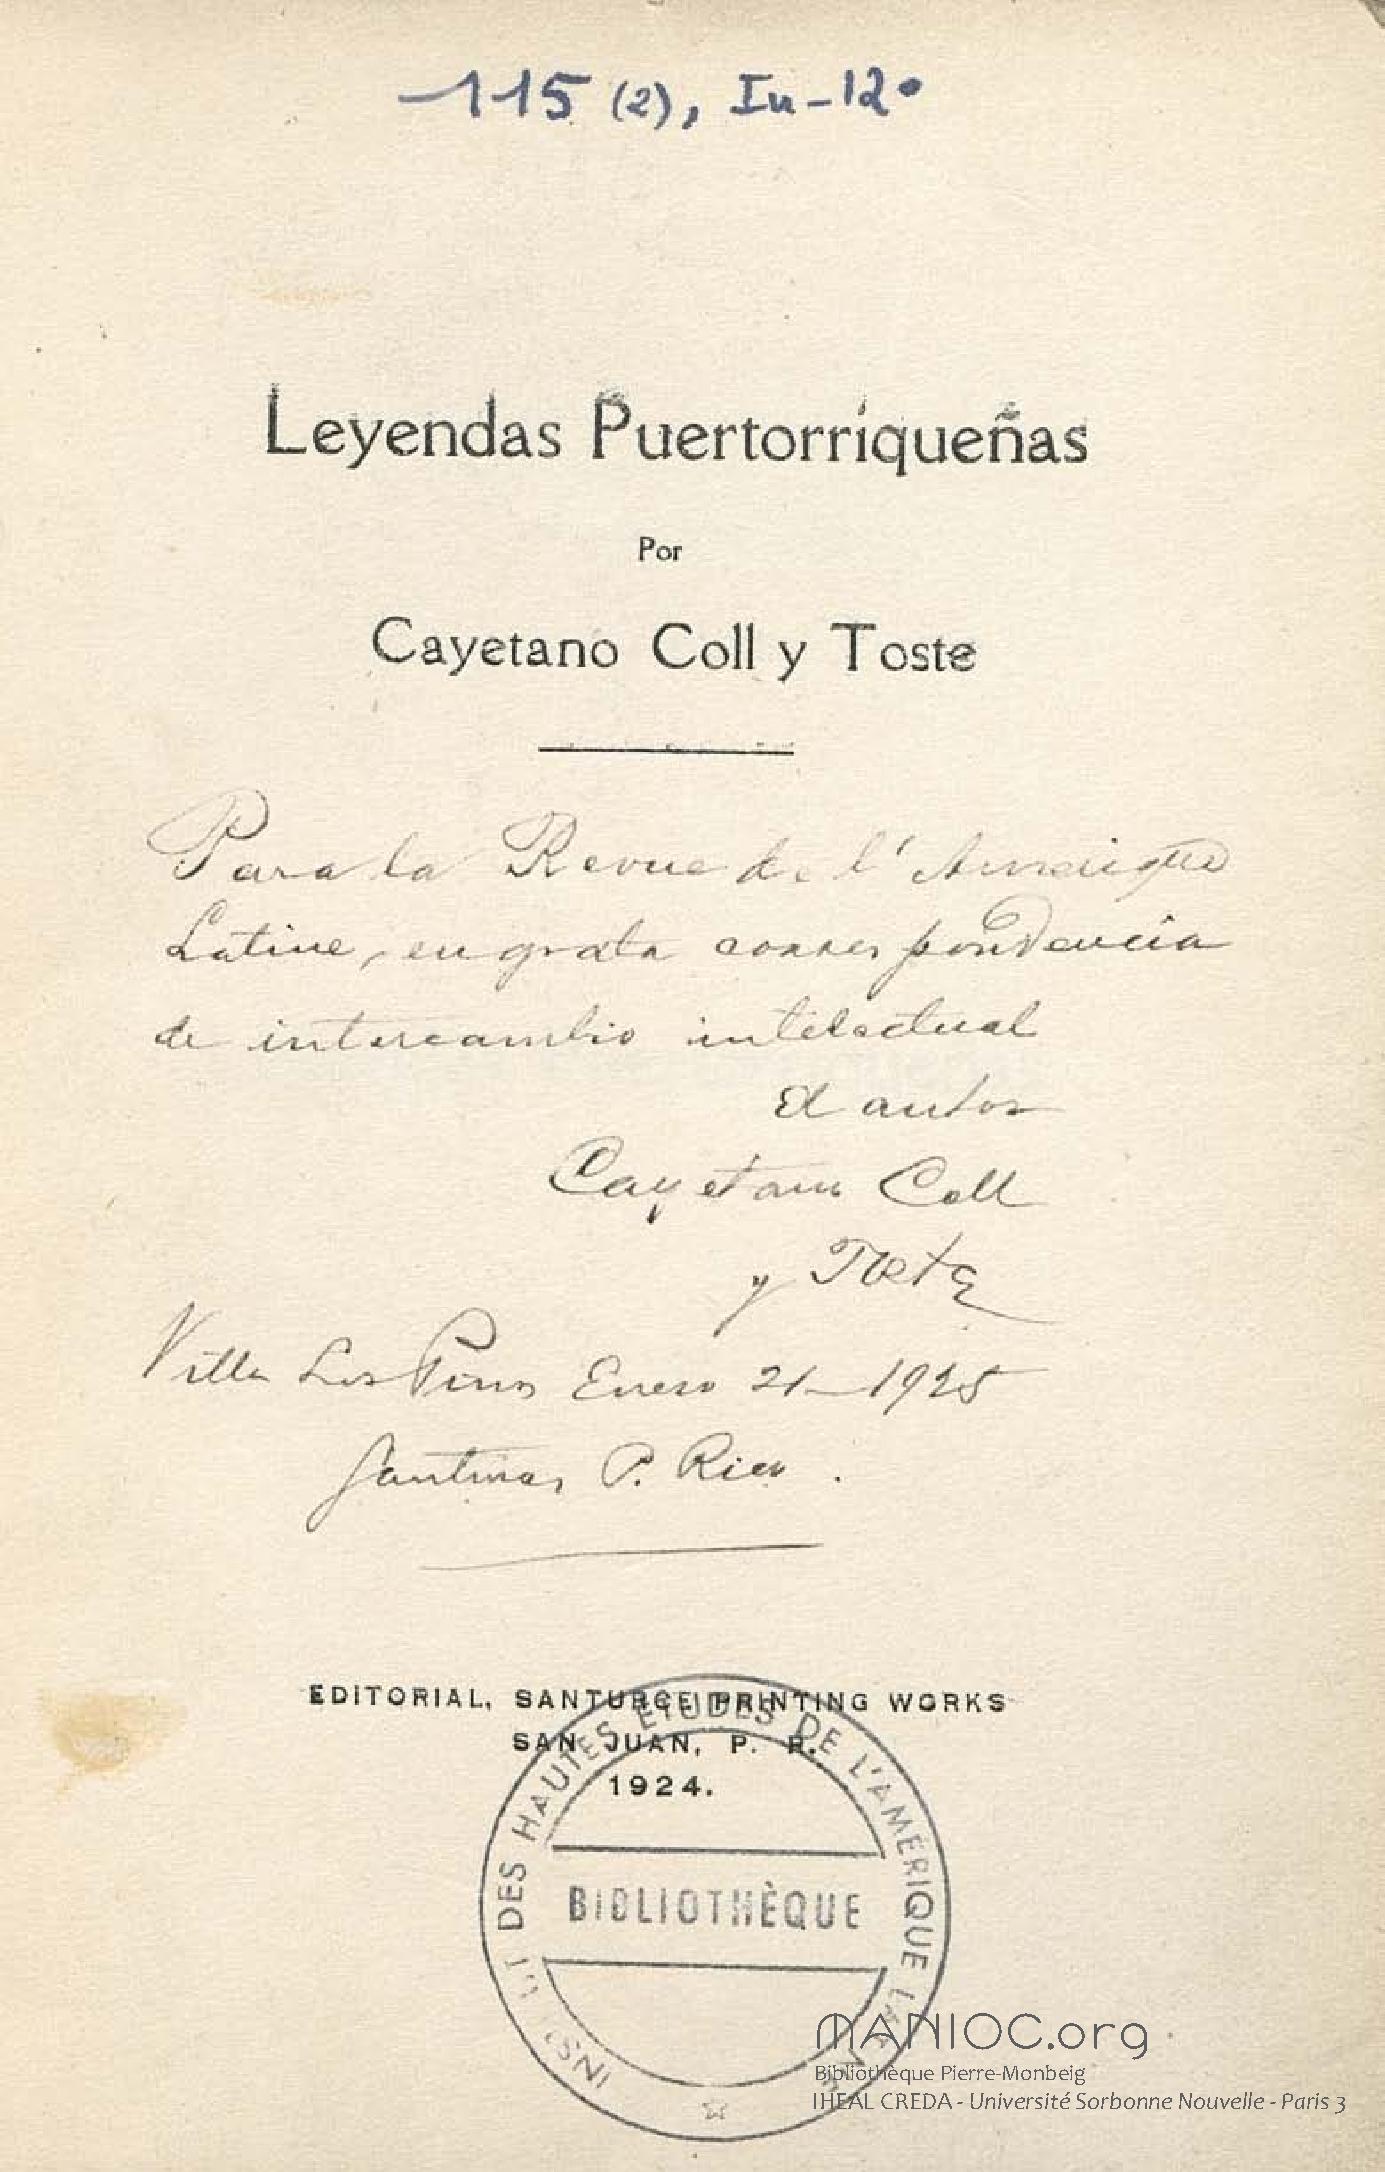 115 (2), In-12°
Leyendas Puertorriqueñas
Por
Cayetano Coll y Toste
Para la Revue de l'Amerique
Latine, en grata correspondencia
de intercambio intelectual
El autor
Cayetano Coll
y Toste
Villa Los Pinos Enero 21-1925
Santurce, P. Rico.
EDITORIAL, SANTURCE PRINTING WORKS
SAN JUAN, P. R.
1924.
INSTITUT DES HAUTES ETUDES DE L'AMERIQUE LATINE
BIBLIOTHÈQUE
MANIOC.org
Bibliothèque Pierre-Monbeig
IHEAL CREDA - Université Sorbonne Nouvelle - Paris 3